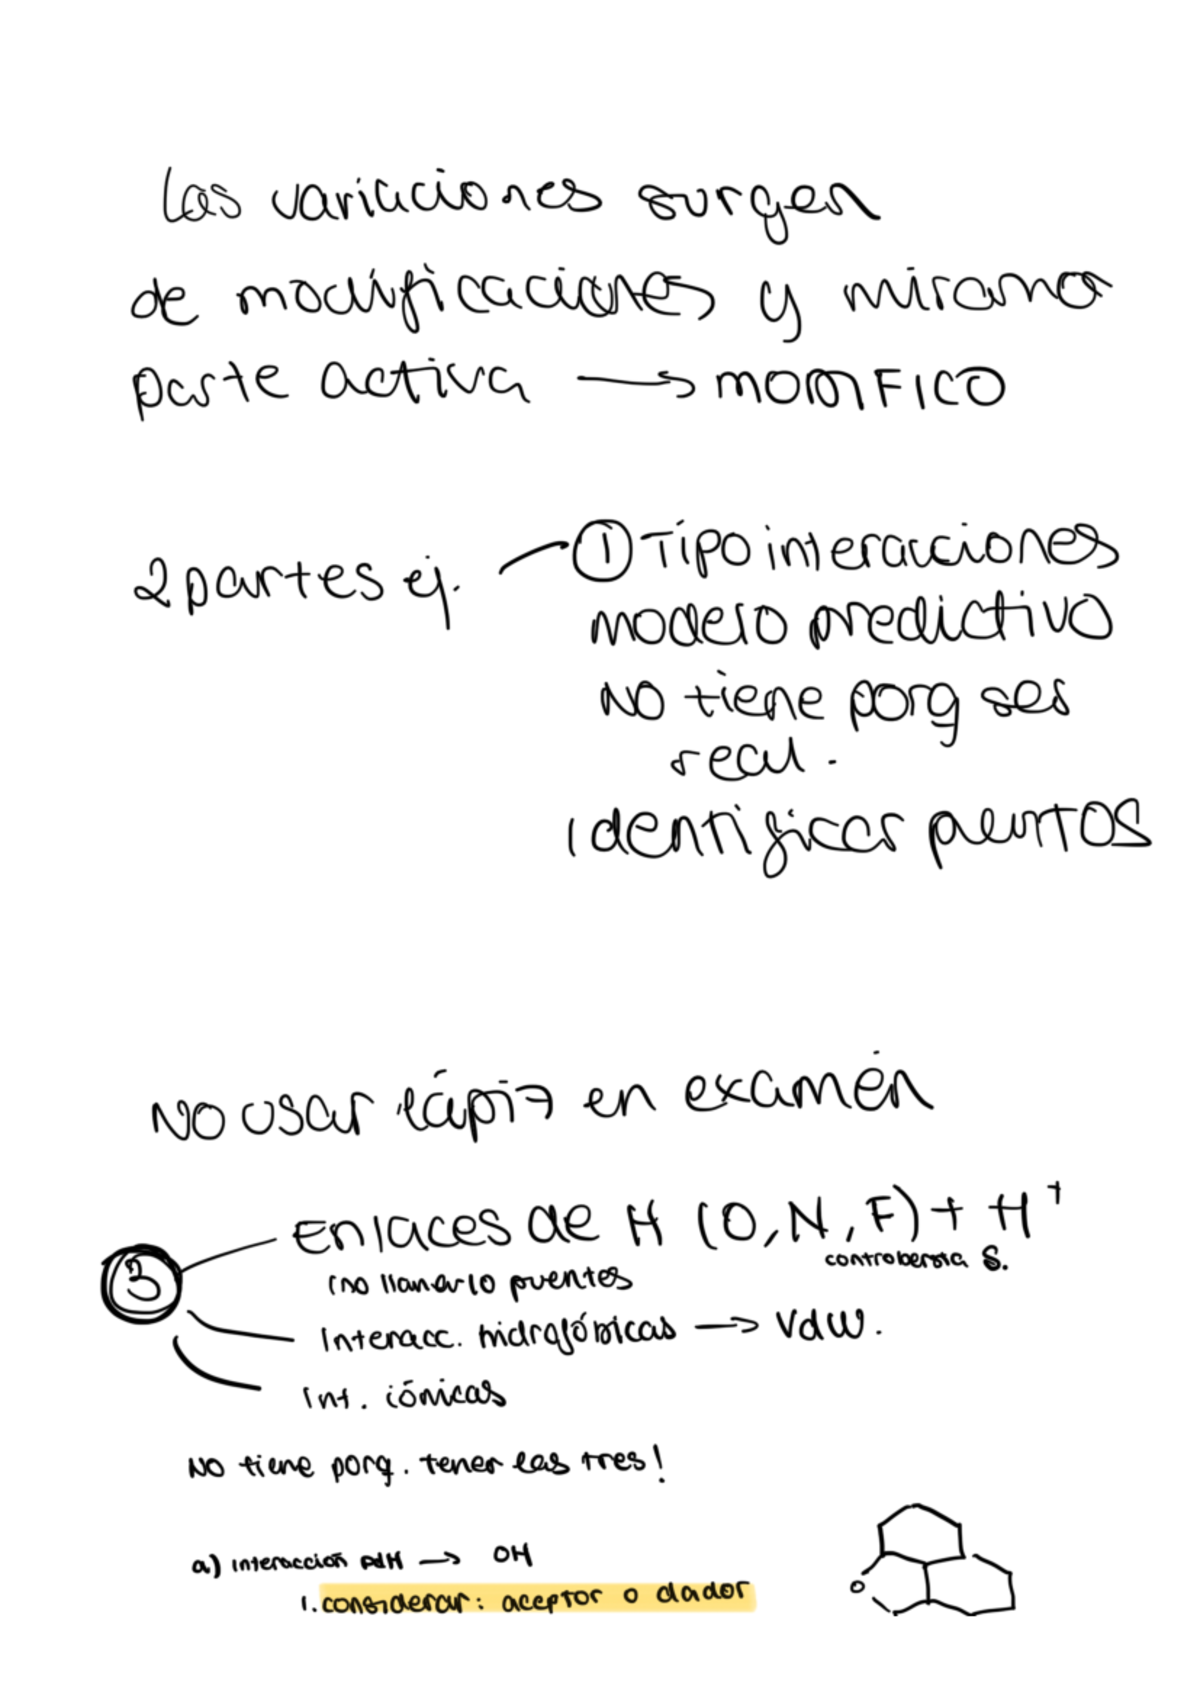 Las variaciones surgen
de modificaciones y miramos
parte activa → MODIFICO
2 partes ej. ① Tipo interacciones
modelo predictivo
NO tiene porq ser
real.
identificar puntos
NO usar lápiz en examén
③ Enlaces de H (O, N, F) + H⁺
(no llamarlo puentes
controbersia S.
Interacc. hidrofóbicas → VdW.
Int. iónicas
NO tiene porq. tener las tres!
a) Interacción pdH → OH
1. considerar: aceptor o dador
O